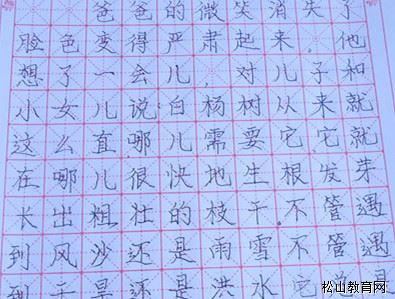 爸爸的微笑消失了
脸色变得严肃起来,他
想了一会儿,对儿子和
小女儿说:白杨树从来就
这么直哪儿需要它,它就
在哪儿很快地生根发芽
长出粗壮的枝干。不管遇
到风沙还是雨雪不管遇
到干旱还是洪水它总是
松山教育网